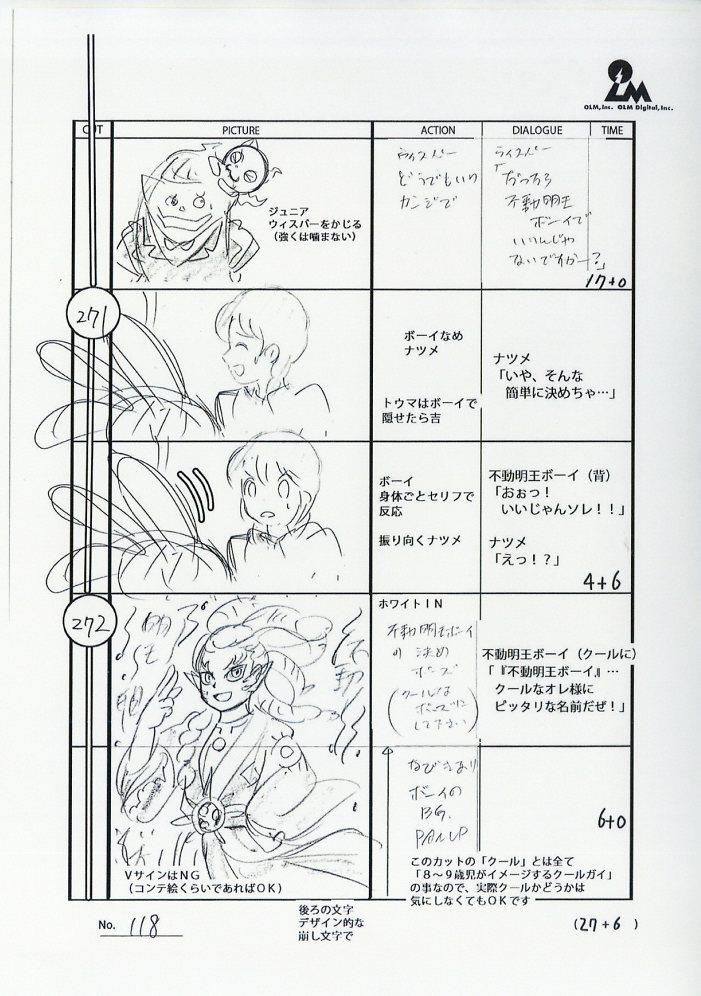 OLM, Inc. OLM Digital, Inc.
CUT
PICTURE
ACTION
DIALOGUE
TIME
ジュニア
ウィスパーをかじる
（強くは噛まない）
ウィスパー
どうでもいい
カンジで
ウィスパー
「だったら
不動明王
ボーイで
いいんじゃ
ないですかー？」
17+0
271
ボーイなめ
ナツメ
トウマはボーイで
隠せたら吉
ナツメ
「いや、そんな
簡単に決めちゃ…」
ボーイ
身体ごとセリフで
反応
振り向くナツメ
不動明王ボーイ（背）
「おぉっ！
いいじゃんソレ！！」
ナツメ
「えっ！？」
4+6
272
不動
明王
ホワイトＩＮ
不動明王ボーイ
の決め
ポーズ
（クールな
ポーズに
して下さい）
不動明王ボーイ（クールに）
「『不動明王ボーイ』…
クールなオレ様に
ピッタリな名前だぜ！」
なびきあり
ボーイの
BG.
PAN UP
6+0
ＶサインはＮＧ
（コンテ絵くらいであればＯＫ）
このカットの「クール」とは全て
「８〜９歳児がイメージするクールガイ」
の事なので、実際クールかどうかは
気にしなくてもＯＫです
後ろの文字
デザイン的な
崩し文字で
No. 118
(27+6)